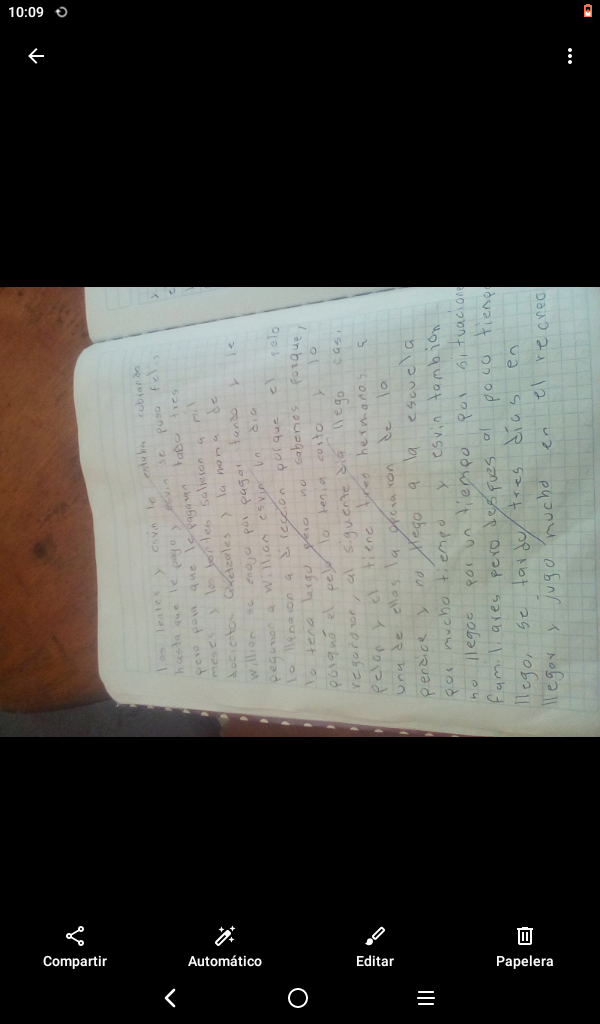 10:09
los lentes y esvin le estaba cobrando
hasta que le pago y esvin se puso feliz
pero para que le pagaran tardo tres
meses y los lentes salieron a mil
docientos Quetzales y la mama de
willian se enojo por pagar tando y le
pegaron a willian esvin un dia
lo llamaron a direccion porque el pelo
lo tenia largo pero no sabemos porque,
porque el pelo lo tenia corto y lo
regañaron, al siguente dia llego casi
pelon y el tiene tres hermanas a
una de ellas la operaron de la
pendice y no llego a la escuela
por mucho tiempo y esvin tambien
no llegoo por un tiempo por situacione
familiares pero despues al poco tiempo
llego, se tardo tres días en
llegar y jugo mucho en el recreo
Compartir
Automático
Editar
Papelera